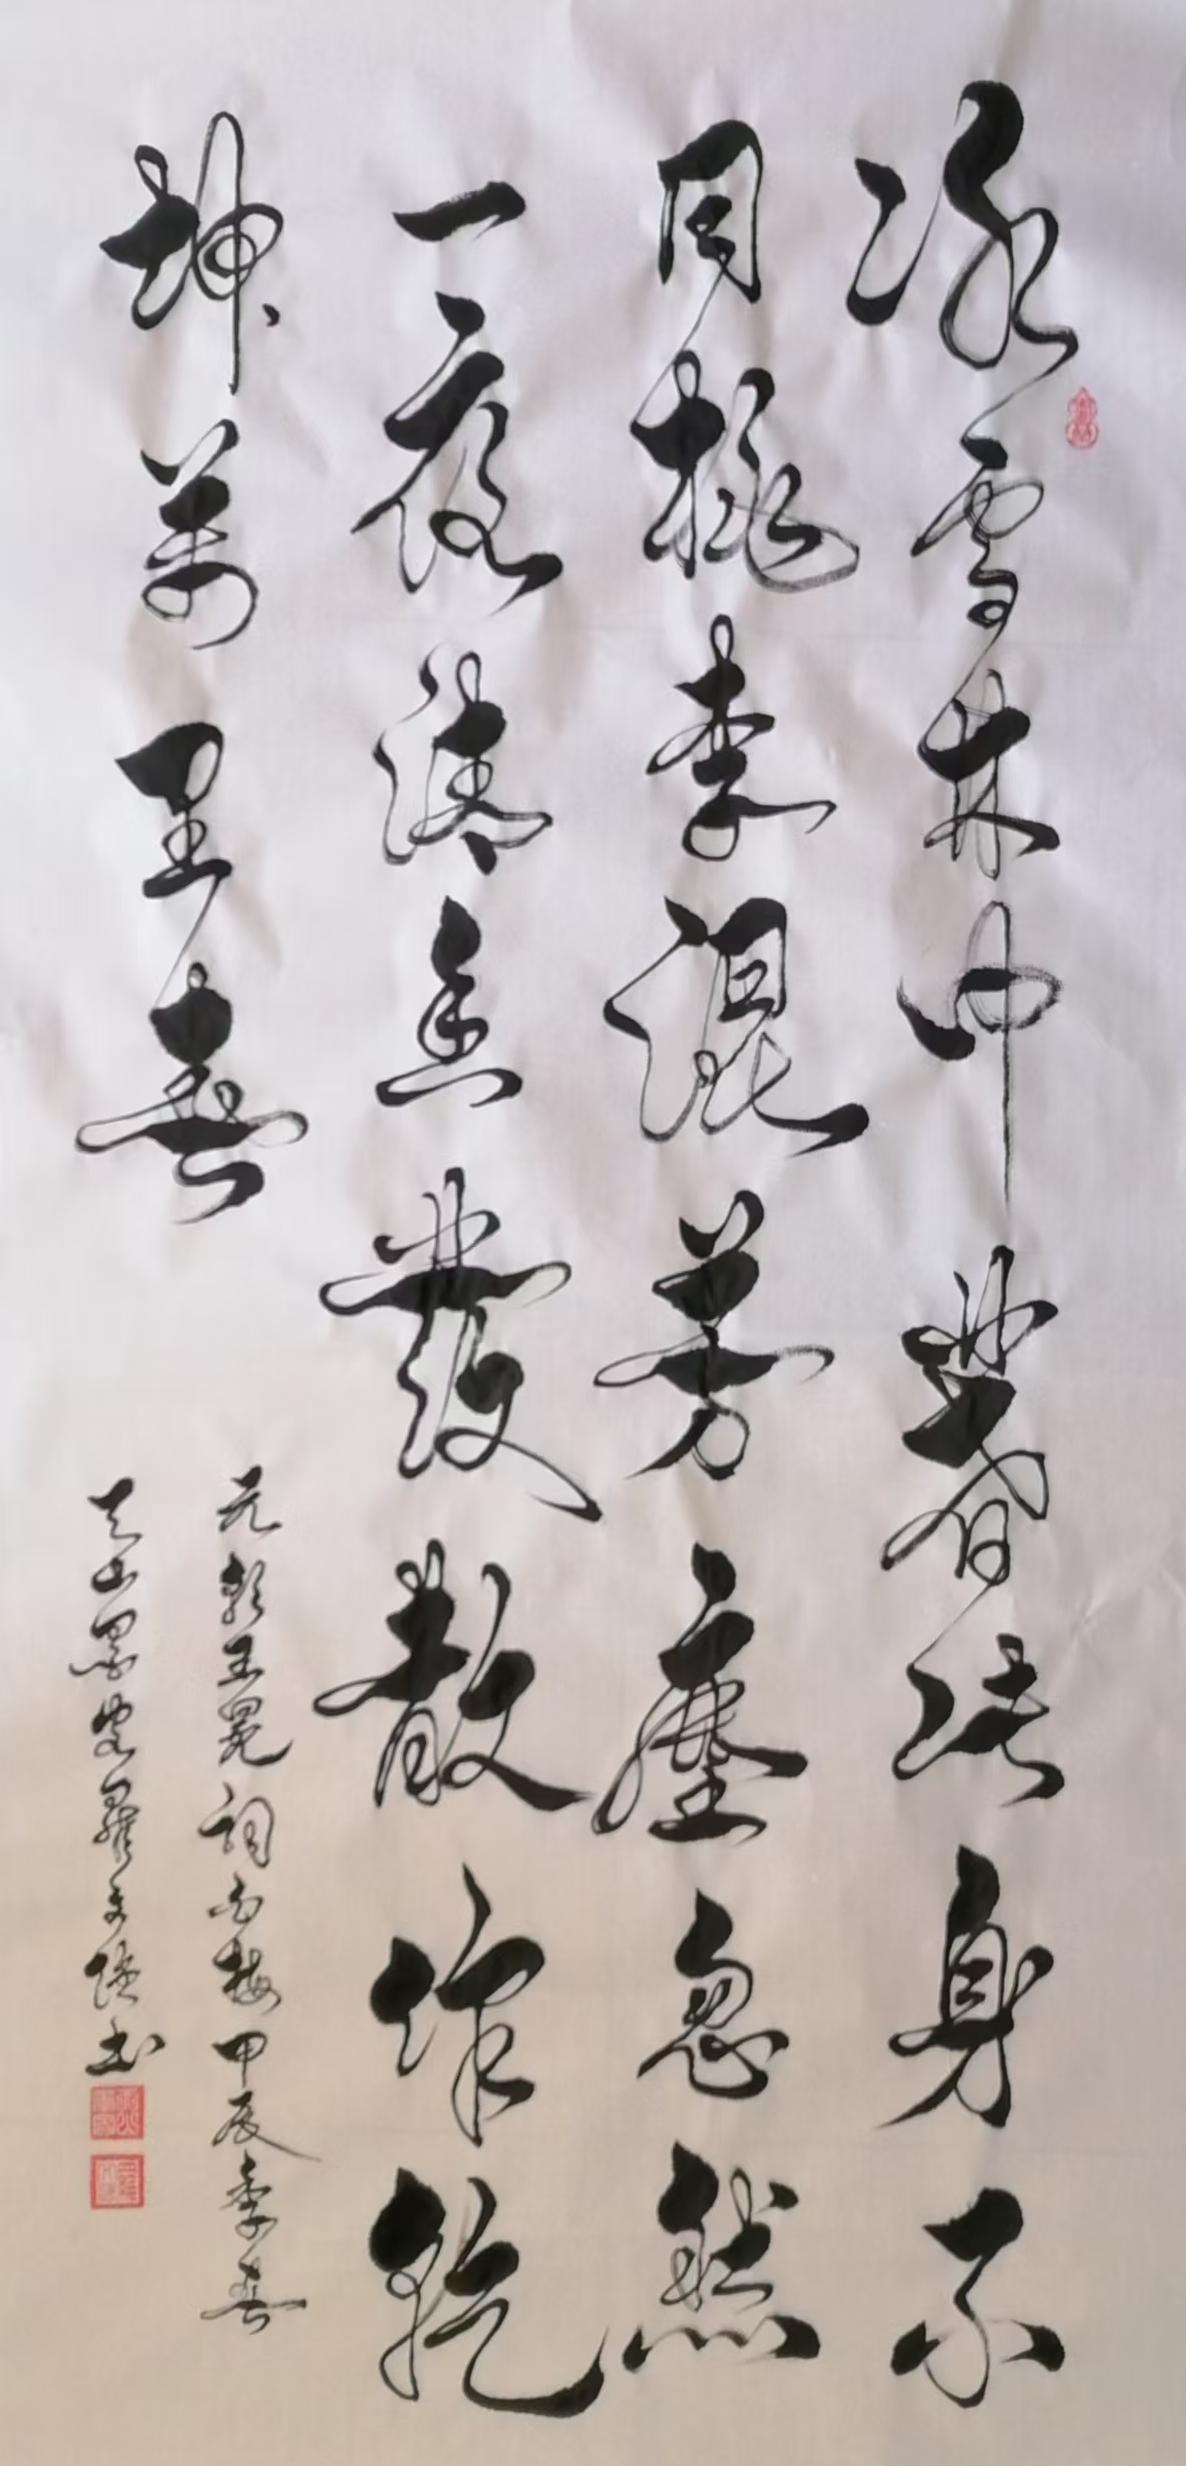 冰雪林中著此身不
同桃李混芳塵忽然
一夜清香發散作乾
坤萬里春
元朝王冕詞白梅甲辰季春
天山墨客羅书